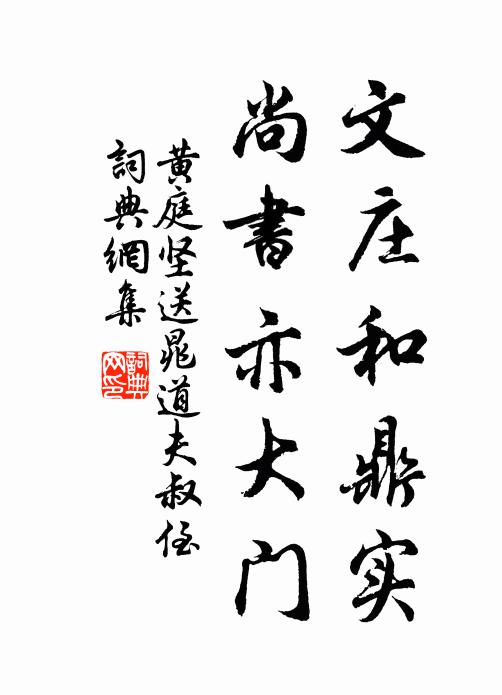 文庄和鼎实
尚書亦大门
黄庭坚送晁道夫叔侄
詞典網集
詞典網印